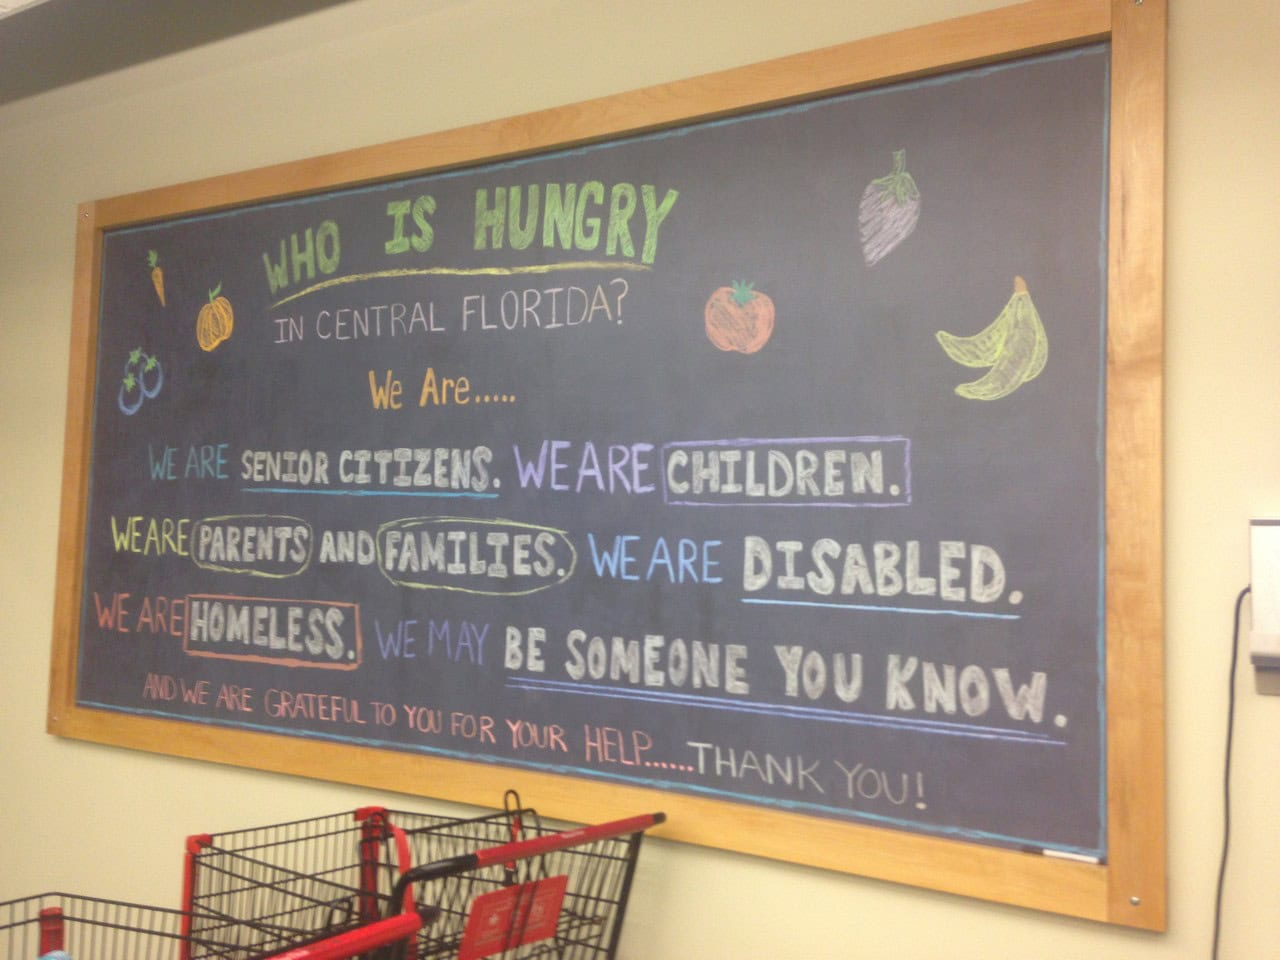 WHO IS HUNGRY
IN CENTRAL FLORIDA?
We Are.....
WE ARE SENIOR CITIZENS. WE ARE CHILDREN.
WE ARE PARENTS AND FAMILIES. WE ARE DISABLED.
WE ARE HOMELESS. WE MAY BE SOMEONE YOU KNOW.
AND WE ARE GRATEFUL TO YOU FOR YOUR HELP......THANK YOU!